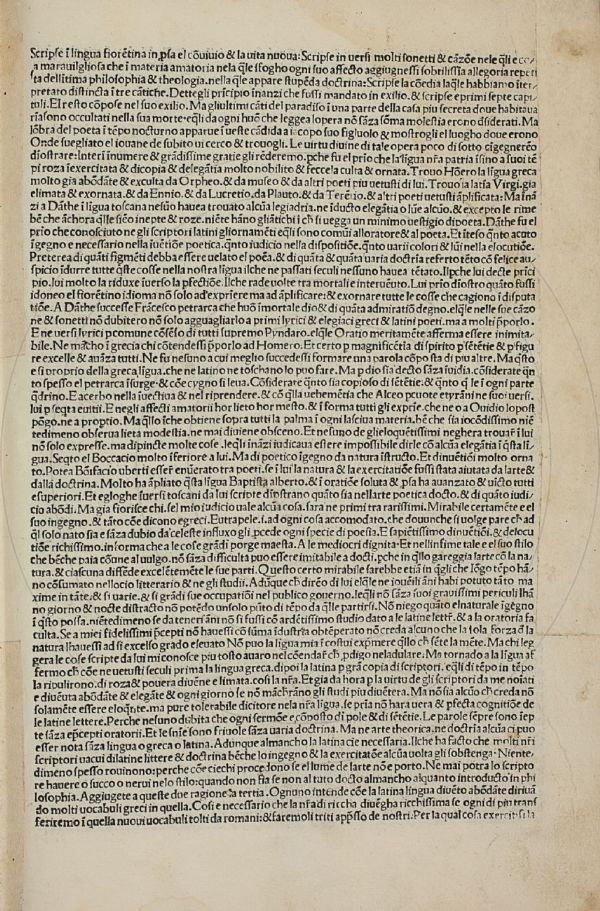 Scripse ī lingua fiorētina in ꝓsa el cōuiuio & la uita nuoua: Scripse in uersi molti sonetti & cāzōe nele q̄li e co/
sa marauigliosa che ī materia amatoria nela q̄le sfogho ogni suo affecto aggiugnessi sobrilissīa allegoria repeti
ta dell itima philosophia & theologia. nella q̄le appare stupēda doctrina: Scripse la cōedia laq̄le habbiamo iter/
pretato distīcta ī tre cātiche. Dettegli prīcipio inanzi che fussi mandato in exilio. & scripse e primi septe capi/
tuli. El resto cōpose nel suo exilio. Ma gliultimi cāti del paradiso ī una parte della casa piu secreta doue habitaua
rīasono occultati nella sua morte: eq̄li da ogni huō che leggea lopera nō sāza sōma molestia erono dsiderati. Ma
lōbra del poeta ī tēpo nocturno apparue ī ueste cādida a iacopo suo figluolo & mostrogli el luogho doue erono
Onde suegliato el iouane de subito ui cerco & trouogli. Le uirtu diuine di tale opera poco di sotto cigegnerēo
dīostrare: Interī īnumere & grādissime gratie gli rēderemo. ꝑche fu el prīo che la līgua nr̄a patria īsino a suoi tē
pi roza īexercitata & dicopia & delegātia molto nobilito & feccela culta & ornata. Trouo Hōero la līgua greca
molto gia abōdāte & exculta da Orpheo. & da museo & da altri poeti piu uetusti di lui. Trouo la latīa Virgi.gia
elimata & exornata. & da Ennio. & da Lucretio. da Plauto. & da Terētio. & altri poeti uetusti āplificata: Ma inā
zi a Dāthe ī līgua toscana nesuo hauea trouato alcūa leggiadria. ne īducto elegātia o lūe alcūo. & excepto le rime
bēche āchora q̄lle sīēo inepte & roze. niēte hāno gliātichi ī ch̄ si uegga un minimo uestigio di poeta. Dāthe fu el
prīo che conosciuto ne gli scriptori latini gliornamēti eq̄li sono comūi alloratore & al poeta. Et īteso q̄nto acuto
īgegno e necessario nella iuētiōe poetica. q̄nto iudicio nella dispositiōe. q̄nto uarii colori & lūi nella elocutiōe.
Preterea di quāti figmēti debba essere uelato el poēa. & di quāta & quāta uaria doctria referto tētō cō felice au/
spicio īdurre tutte q̄ste cose nella nostra līgua ilche ne passati seculi nessuno hauea tētato. Ilꝑche lui decte prīci
pio. lui molto la riduxe iuerso la ꝑfectiōe. Ilche rade uolte tra mortali e interuēuto. Lui prio dīostro quāto fussi
idoneo el fiorētino idioma nō solo ad exꝑriere ma ad āplificare: & exornare tutte le cose che cagiono ī disputa
tiōe. A Dāthe successe Frācesco petrarca che huō īmortale dio & di quāta admiratiō degno. elq̄le nelle sue cāzo
ne & sonetti nō dubitero nō solo agguagliarlo a primi lyrici & elegiaci greci & latini poeti. ma a molti p̄porlo.
E ne uersi lyrici ꝑ comune cōsēso di tutti supremo Pyndaro. elq̄le Oratio meritamēte afferma essere inimita/
bile. Ne mācho ī grecia chi cōtendessi ꝑporlo ad Homero. Et certo ꝑ magnificētia di spirito ꝑ sētētie & ꝑ figu
re excelle & auāza tutti. Ne fu nesuno a cui meglio succedessi formare una parola cōposta di piu altre. Ma q̄sto
e si proprio della greca līgua. che ne latino ne toschano lo puo fare. Ma ꝑ dio sia decto sāza iuidia. cōsiderate q̄n
to spesso el petrarca īsurge. & cōe cygno si leua. Cōsiderare q̄nto sia copioso di sētētie. & q̄nto q̄lle ī ogni parte
q̄drino. E acerbo nella īuectiua & nel riprendere. & cō q̄lla uehemētia che Alceo pcuote etyrāni ne suoi uersi.
lui ꝑ seqta euitii. E negli affecti amatorii hor lieto hor mesto. & ī forma tutti gli exprie. che ne o a Ouidio lopost
pōgo. ne a proptio. Ma q̄llo īche obtiene sopra tutti la palma ī ogni lasciua materia. bēche sia iocōdissimo niē
tedimeno obserua lieta modestia. ne mai diuiene obsceno. Et nesuno de glieloquētissimi neghera trouare ī lui
nō solo expresse. ma dipincte molte cose. leq̄li ināzi iudicaua essere impossibile dirle cō alcūa elegātia ī q̄sta lī
gua. Seqto el Boccacio molto īferiore a lui. Ma di poetico īgegno da natura īstructo. Et dinuētiōi molto orna
to. Potea Bōifacio uberti esser enūerato tra poeti. se ī lui la natura & la exercitatiōe fussi stata aiutata da larte &
dalla doctrina. Molto ha āpliato q̄sta līgua Baptista alberto. & ī oratiōe soluta & ꝓsa ha auanzato & uicto tutti
e superiori. Et egloghe & uersi toscani da lui scripte dīostrano quāto sia nellarte poetica docto. & di quāto iudi/
cio abōdi. Ma gia fiorisce chi. sel mio iudicio uale alcūa cosa. sara ne primi tra rarissimi. Mirabile certamēte e el
suo ingegno. & tāto cōe dicono egreci. Eutrapele. i. ad ogni cosa accomodato. che dounche si uolge pare ch̄ ad
q̄l solo nato sia e sāza dubio da celeste influxo gli ꝓcede ogni specie di poesia. E sapiētissimo dinuētiōi. & delocu
tiōe richissimo. informa che a le cose grādi porge maesta. A le mediocri dignita. Et nellinfime tale e el suo stilo
che bēche paia cōune al uulgo. nō sāza difficulta puo essere imitabile a docti. ꝑche in q̄llo gareggia larte cō la na
tura. & ciascuna difēde excelētemēte le sue parti. Questo certo mirabile sarebbe etiā in q̄gli che lōgo tēpo hā/
no cōsumato nellocio litterario & ne gli studii. Adūque ch̄ direo di lui elq̄le ne iouēili āni habi potuto tāto ma
xime in tāte. & si uarie. & si grādi sue occupatiōi nel publico gouerno. leq̄li nō sāza suoi grauissimi periculi lhā
no giorno & nocte distracto nō potēdo un solo pūto di tēpo da q̄lle partirsi. Nō niego quāto el naturale īgēgno
ī q̄sto possa. niētedimeno se da teneri āni nō si fussi cō ardētissimo studio dato a le latine lett̄. & a la oratoria fa
culta. Se a miei fidelissimi p̄cepti nō hauessi cō sūma īdustria obtēperato nō creda alcuno che la sola forza d̄ la
natura lhauessi ad si excelso grado eleuato Nō puo la līgua mia ī costui expmere q̄llo ch̄ sēte la mēte. Ma chi leg
gera le cose scripte da lui mi conosce piu tosto auaro nel cōmēdarch̄. ꝓdigo nel ladarch̄. Ma tornādo a la līgua af
fermo ch̄ cōe ne uetusti seculi prima la lingua greca. dipoi la latina ꝑ grā copia di scriptori. eq̄li di tēpo in tēpo
la ripulirono. di roza & pouera diuēne elimata. cosi la nr̄a. Et gia da hora ꝑ la uirtu de gli scriptori da me noiati
e diuēuta abōdāte & elegāte & ogni giorno se nō mācherāno gli studi piu diuētera. Ma nō sia alcūo ch̄ creda nō
solamēte essere eloq̄nte. ma pure tolerabile dicitore nela nr̄a līgua. se pria nō hara uera & ꝑfecta cognitiōe de
le latine lettere. Perche nesuno dubita che ogni sermōe e cōposto di ꝑole & di sētētie. Le parole sēpre sono īep
te sāza ꝑcepti oratorii. Et le sn̄ie sono friuole sāza uaria doctrina. Ma ne arte rheorica. ne doctria alcūa ci puo
esser nota sāza līngua o greca o latina. Adunque almancho la latina cie necessaria. Ilche ha facto che molti nr̄i
scriptori uacui di latine littere & doctrina bēche lo ingegno & la exercitatiōe alcūa uolta gli sobstenga. Niente
dimeno spesso rouinono: perche cōe ciechi procedono se el lume da larte nō e porto. Ne mai potra lo scripto
re hauere o succo o nerui nelo stilo: quando non sia se non al tuto docto almancho alquanto introducto in phi
losophia. Aggiugete a queste due ragione la tertia. Ognuno intende cōe la latina līngua diuēto abōdāte diriuā
do molti uocabuli greci in quella. Cosi e necessario che la nr̄a di riccha diuēgha ricchissima se ogni di piu trans
feriremo ī quella nuoui uocabuli tolti da romani: & faremoli triti app̄sso de nostri. Per la qual cosa exercitisi la